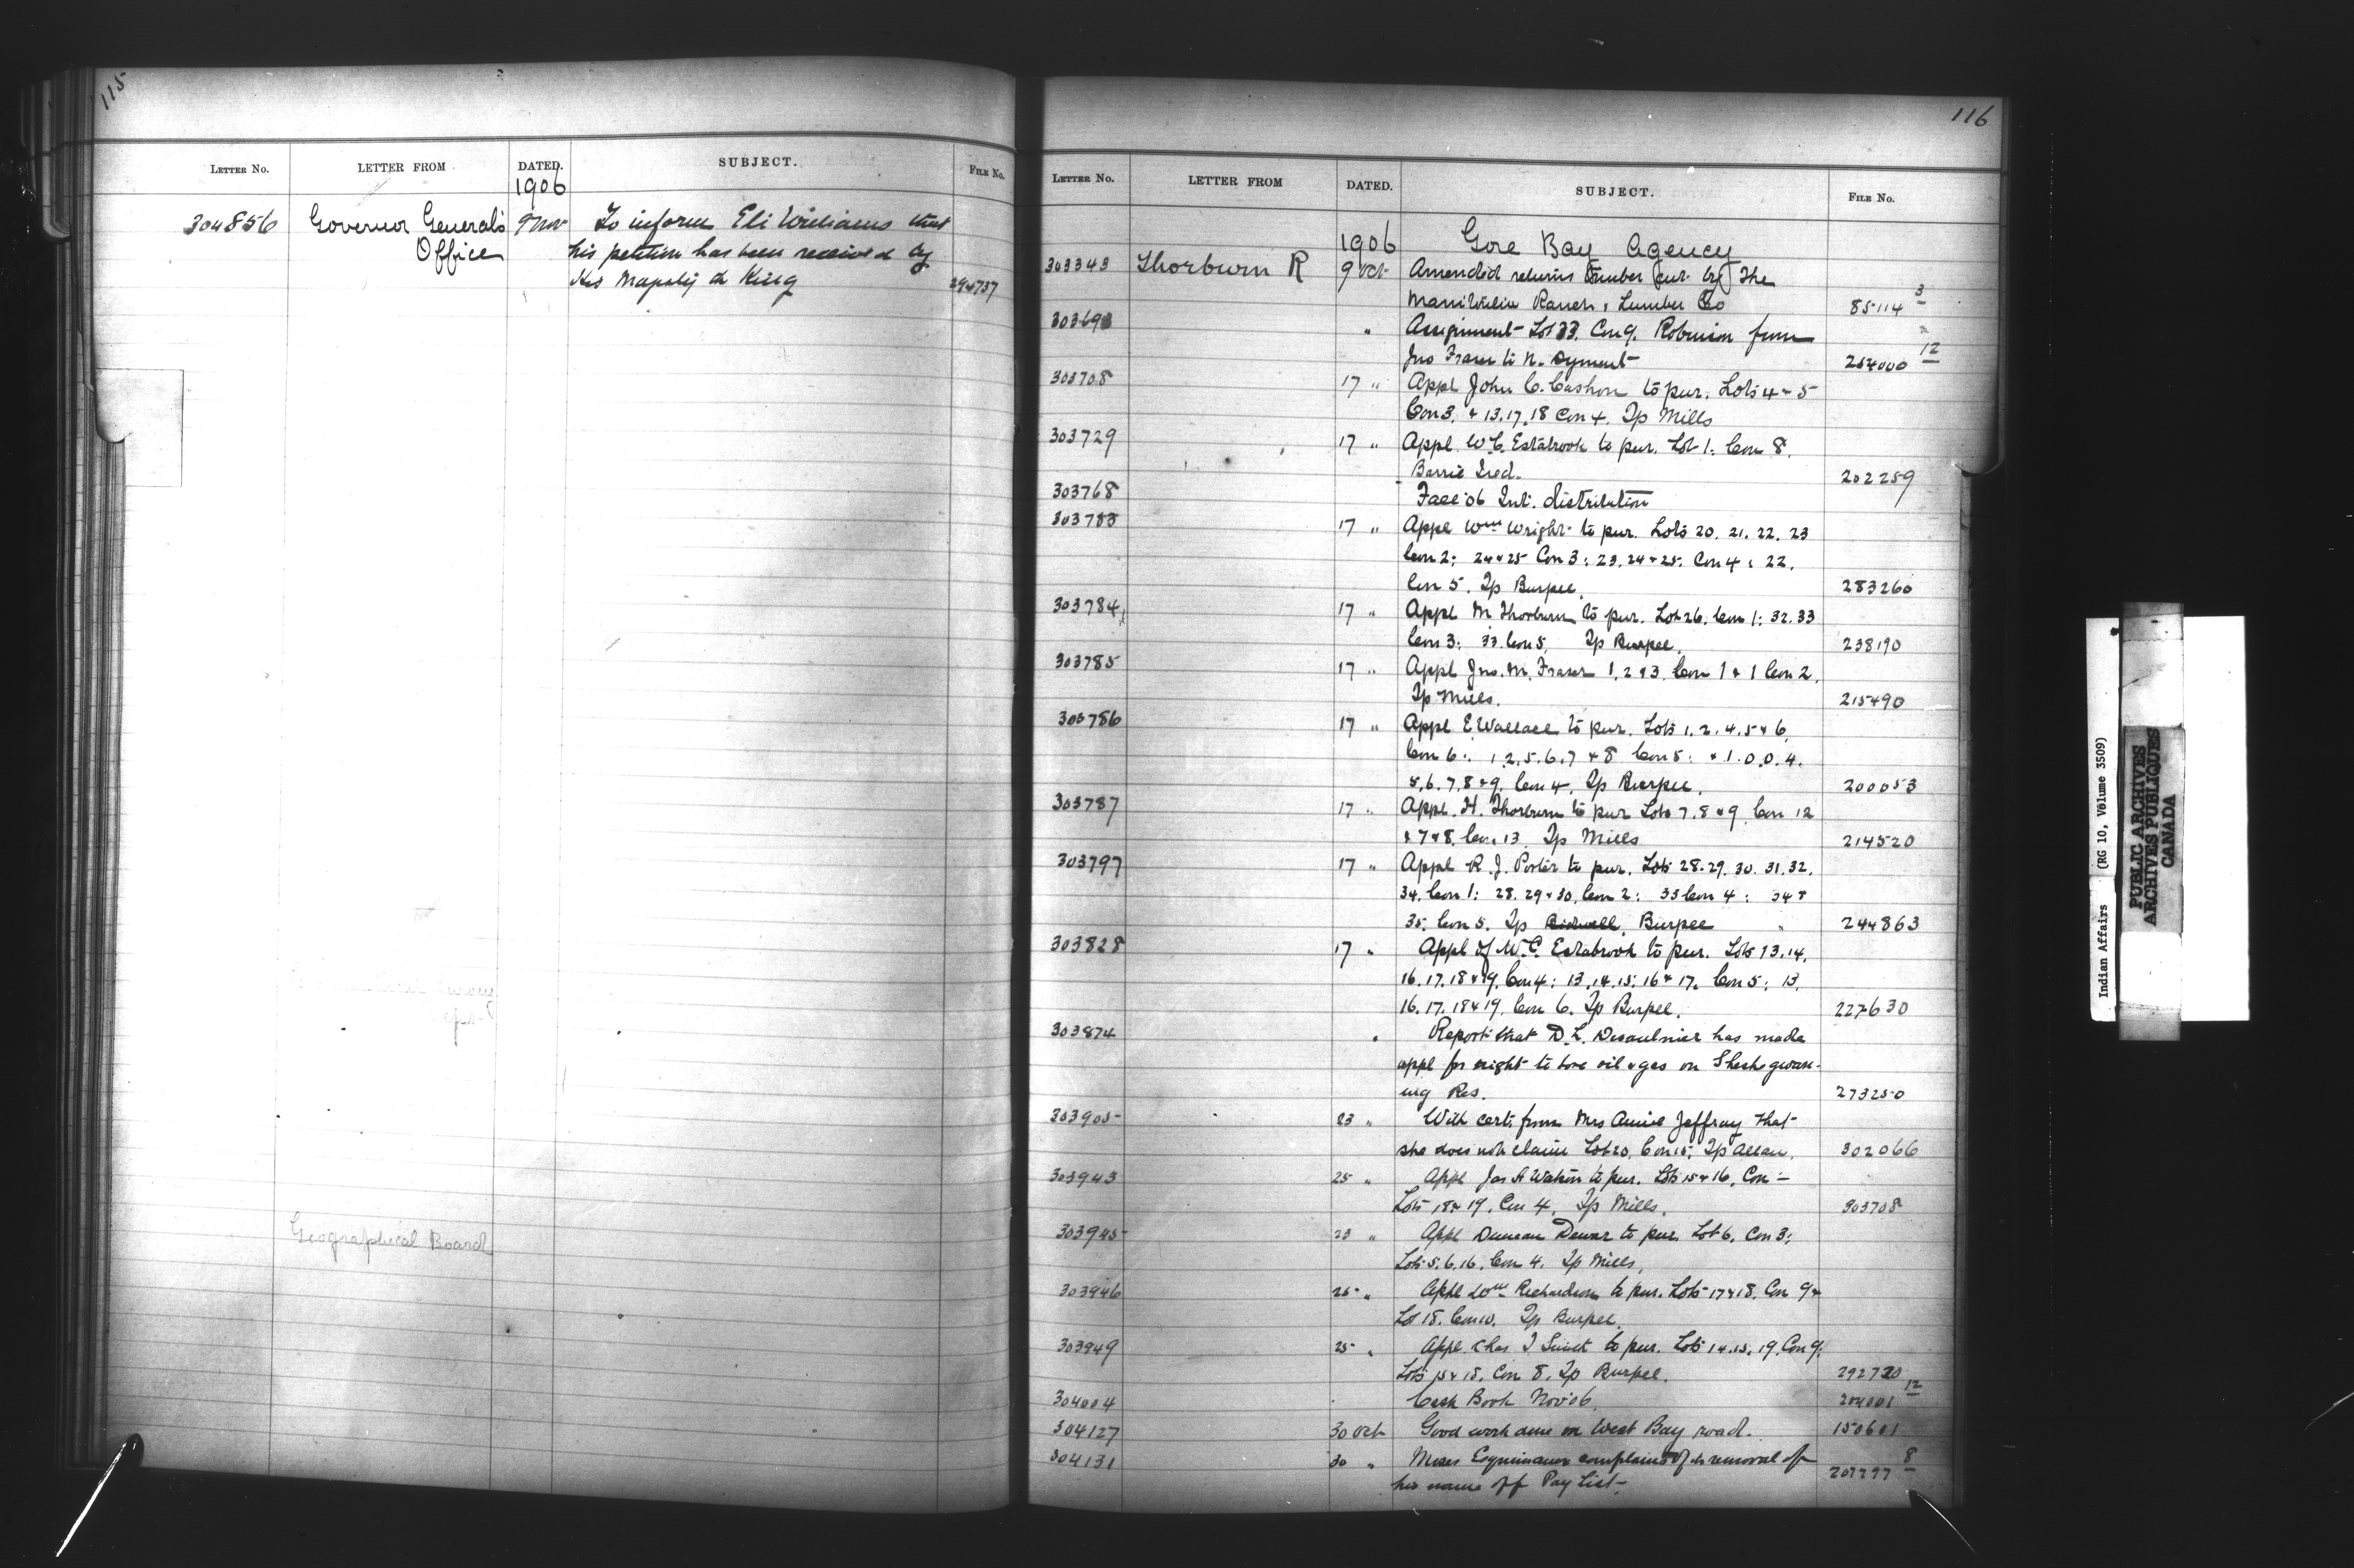 115
LETTER No. LETTER FROM DATED. SUBJECT. FILE No.
1906
304856 Governor General's 9 Nov To inform Eli Williams that
Office his petition has been received by
His Majesty the King 294737
Geographical Board
116
LETTER No. LETTER FROM DATED. SUBJECT. FILE No.
1906 Gore Bay Agency
303343 Thorburn R 9 Oct Amended returns timber cut by The
Ranch & Lumber Co 85114 3
303693 " Assignment Lot 33. Con 9. Robinson from
Jno Fraser to N. Dyment 254000 12
303708 17 " Appl John C. Cashon to pur. Lots 4 & 5
Con 3. & 13.17.18 Con 4. Tp Mills
303729 17 " Appl W.C. Estabrook to pur. Lot 1. Con 8.
Barrie Isd. 202259
303768 Fall '06 Int. distribution
303783 17 " Appl Wm Wright to pur. Lots 20. 21. 22. 23
Con 2: 24 & 25 Con 3: 23. 24 & 25. Con 4: 22.
Con 5. Tp Burpee. 283260
303784 17 " Appl M Thorburn to pur. Lot 26. Con 1: 32. 33
Con 3: 33 Con 5. Tp Burpee. 238190
303785 17 " Appl Jno. M. Fraser 1. 2 & 3. Con 1 & 1 Con 2.
Tp Mills. 215490
303786 17 " Appl E Wallace to pur. Lots 1. 2. 4. 5 & 6.
Con 6: 1.2.5.6.7 & 8 Con 5: & 1.0.0.4.
5.6.7.8 & 9. Con 4. Tp Burpee. 200053
303787 17 " Appl. H. Thorburn to pur Lots 7. 8 & 9 Con 12
& 7 & 8. Con. 13. Tp Mills 214520
303797 17 " Appl R. J. Porter to pur. Lots 28. 29. 30. 31. 32.
34. Con 1: 28. 29 & 30. Con 2: 33 Con 4: 34 &
35. Con 5. Tp Bidwell. Burpee 244863
303828 17 " Appl of W.C. Estabrook to pur. Lots 13. 14.
16. 17. 18 & 19. Con 4: 13. 14. 15. 16 & 17. Con 5: 13.
16. 17. 18 & 19. Con 6. Tp Burpee. 227630
303874 " Report that D. L. Desaulnier has made
appl for right to bore oil & gas on Sheshegwan-
ing Res. 273250
303905 23 " With cert. from Mrs Annie Jeffray that
she does not claim Lot 20. Con 15. Tp Allan. 302066
303943 25 " Appl Jas A Watson to pur. Lots 15 & 16. Con -
Lots 18 & 19. Con 4. Tp Mills. 303708
303945 23 " Appl Duncan Dewar to pur. Lot 6. Con 3:
Lots 5. 6. 16. Con 4. Tp Mills.
303946 25 " Appl Wm Richardson to pur. Lots 17 & 18. Con 9 &
Lot 18. Con 10. Tp Burpee.
303949 25 " Appl Chas to pur. Lots 14. 15. 19. Con 9.
Lots 15 & 18. Con 8. Tp Burpee. 292720
304004 Cash Book Nov '06 204001 12
304127 30 Oct Good work done on West Bay road. 150601
304131 30 " Moses complains of removal of
his name off Pay List. 207297 8
Indian Affairs (RG 10, Volume 3509)
PUBLIC ARCHIVES
ARCHIVES PUBLIQUES
CANADA